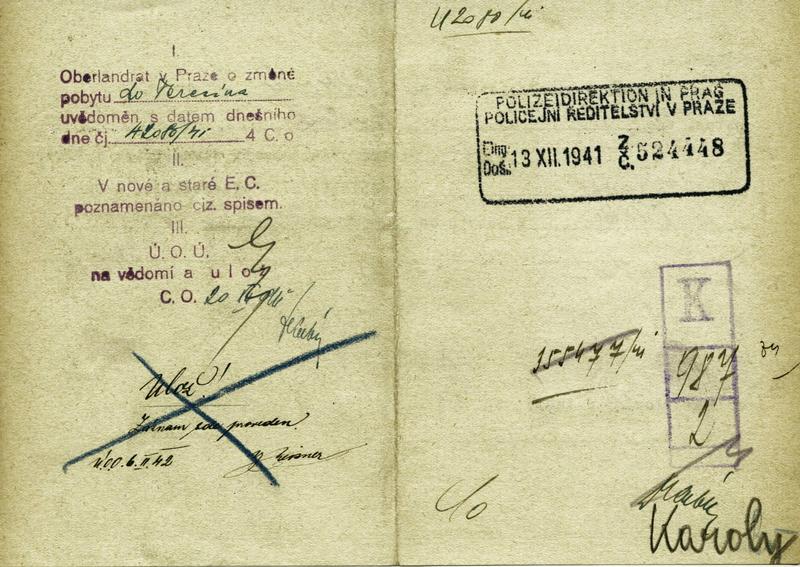 I.
Oberlandrat v Praze o změně
pobytu do Terezína
uvědoměn s datem dnešního
dne čj. 42080/41 4 C. o
II.
V nové a staré E. C.
poznamenáno ciz. spisem.
III.
Ú. O. Ú.
na vědomí a ulož
C. O. 20
Ulož!
Záznam zde proveden.
6.II.42
POLIZEIDIREKTION IN PRAG
POLICEJNÍ ŘEDITELSTVÍ V PRAZE
Eing.
Doš. 13 XII. 1941 Z Č. 524448
K
987
2
Karoly